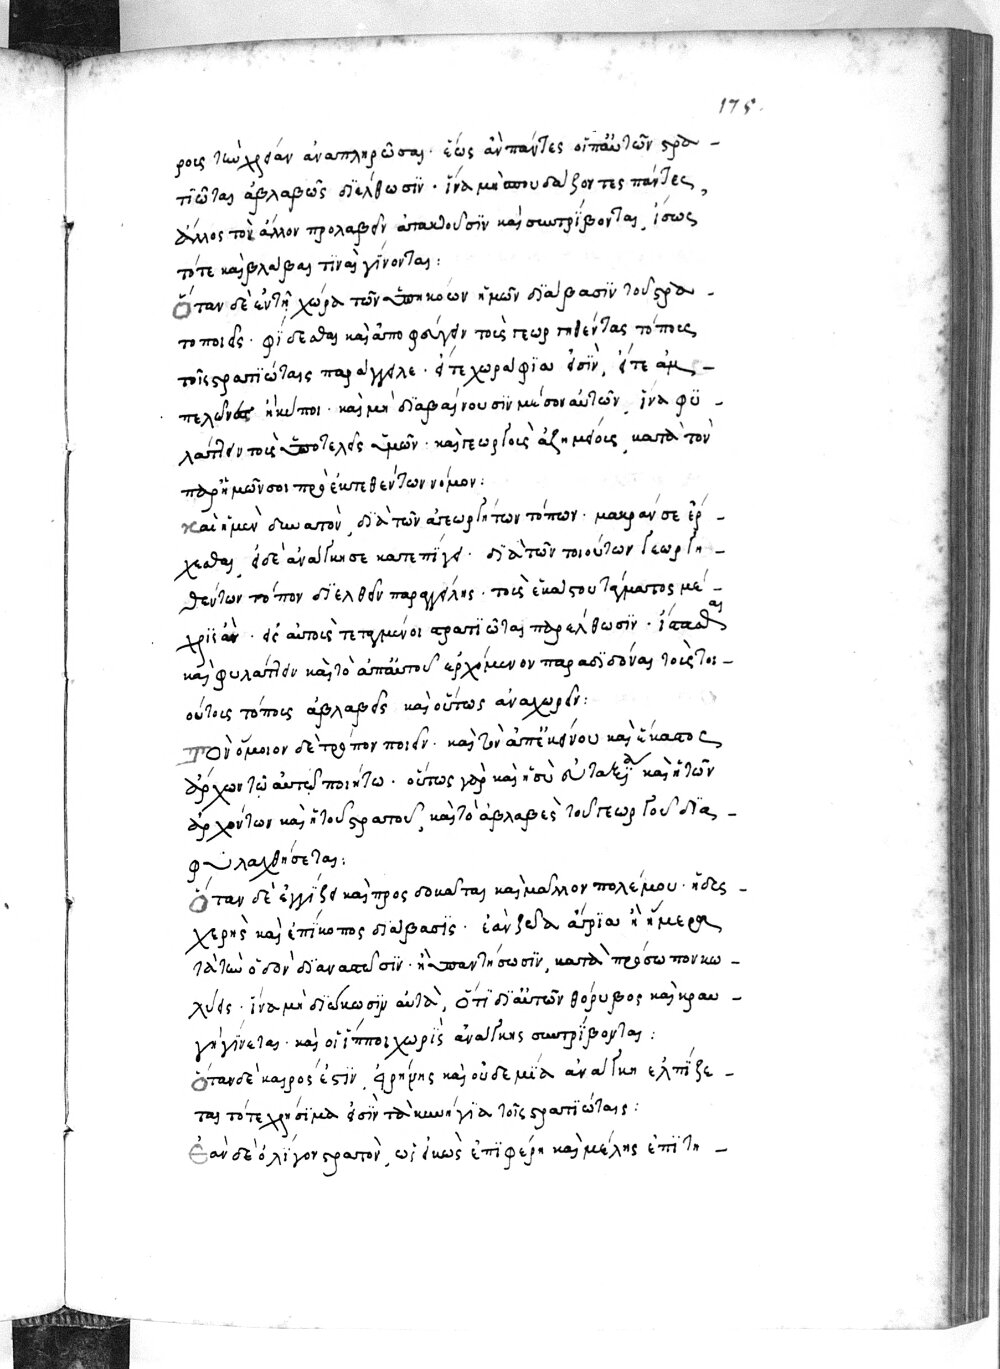 175.
ροις τὴν χρείαν ἀναπληρῶσαι· ἕως ἂν πάντες οἱ ὑπ' αὐτῶν στρα -
τιῶται ἀβλαβῶς διέλθωσϊν· ἵνα μὴ σπουδάζοντες πάντες,
ἄλλος τὸν ἄλλον προλαβεῖν ἀπανθοῦσϊν καὶ συντρίβονται, ἴσως
τότε καὶ βλάβαι τϊνὲς γίνονται:
Ὅταν δὲ ἐν τῇ χώρα τῶν ὑπηκόων ἡμῶν διάβασϊν τοῦ στρα -
τοῦ ποιεῖς· φείδεσθαι καὶ ἀποφεύγειν τοὺς γεωργηθέντας τόπους
τοῖς στρατϊώταις παράγγελε· εἴτε χωράφϊα εἰσϊν, εἴτε ἀμ -
πελῶνες ἢ κῆποι· καὶ μὴ διαβαίνουσϊν μέσον αὐτῶν, ἵνα φυ -
λάττειν τοὺς ὑποτελεῖς ἡμῶν· καὶ γεωργοὺς ἀζημίους, κατὰ τὸν
παρ' ἡμῶν σοι προεκτεθέντων νόμον:
Καὶ εἰ μὲν δυνατὸν, διὰ τῶν ἀγεωργήτων τόπων· μακράν σε ἔρ -
χεσθαι, εἰ δὲ ἀνάγκη σε κατεπείγει· διὰ τῶν τοιούτων γεωργη -
θέντων τόπον διελθεῖν παραγγείλης· τοὺς ἑκάστου τάγματος μέ -
χρις ἂν· οἱ αὐτοῖς τεταγμένοι στρατιῶται παρέλθωσϊν· ἵστασθαι
καὶ φυλάττειν καὶ τὸ ἀπ' αὐτοῦ ἐρχόμενον παραδιδόναι τοὺς τοι -
ούτους τόπους ἀβλαβεῖς καὶ οὕτως ἀναχωρεῖν:
Τὸν ὅμοιον δὲ τρόπον ποιεῖν· καὶ τὸν ἀπ' ἐκείνου καὶ ἕκαστος
ἄρχων τῷ αὐτῷ ποιήτω· οὕτως γὰρ καὶ ἡ σὺ εὐταξία καὶ ἡ τῶν
ἀρχόντων καὶ ἡ τοῦ στρατοῦ, καὶ τὸ ἀβλαβὲς τοῦ γεωργοῦ δϊα -
φυλαχθήσεται:
Ὅταν δὲ ἐγγίζει καὶ προσδοκᾶται καὶ μᾶλλον πολέμου· ἡ δυσ -
χερὴς καὶ ἐπίκοπος διάβασϊς· ἐὰν ἄγρια ἢ ἥμερα
κατὰ πρόσωπον κω -
λύεις· ἵνα μὴ διώκωσϊν αὐτὰ, ὅτι δι' αὐτῶν θόρυβος καὶ κραυ -
γὴ γίνεται· καὶ οἱ ἵπποι χωρὶς ἀνάγκης συντρίβονται:
Ὅταν δὲ καιρός ἐστϊν, εἰρήνης καὶ οὐδεμία ἀνάγκη ἐλπίζε -
ται τότε χρήσιμα εἰσϊν τὰ κυνήγϊα τοῖς στρατϊώταις:
Ἐὰν δὲ ὀλίγον στρατὸν, ὡς εἰκὼς ἐπϊφέρη καὶ μέλης ἐπὶ τῆ -